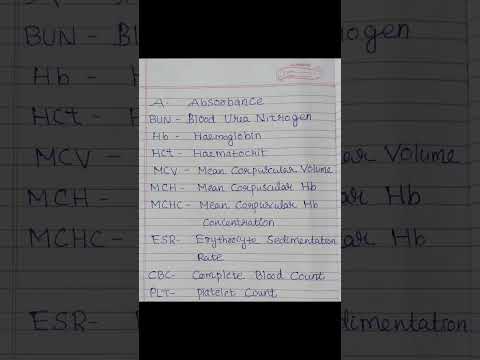 A- Absorbance
BUN - Blood Urea Nitrogen
Hb - Haemoglobin
HCt - Haematocrit
MCV - Mean Corpuscular Volume
MCH - Mean Corpuscular Hb
MCHC- Mean Corpuscular Hb
Concentration
ESR- Erythrocyte Sedimentation
Rate
CBC- Complete Blood Count
PLT- Platelet Count